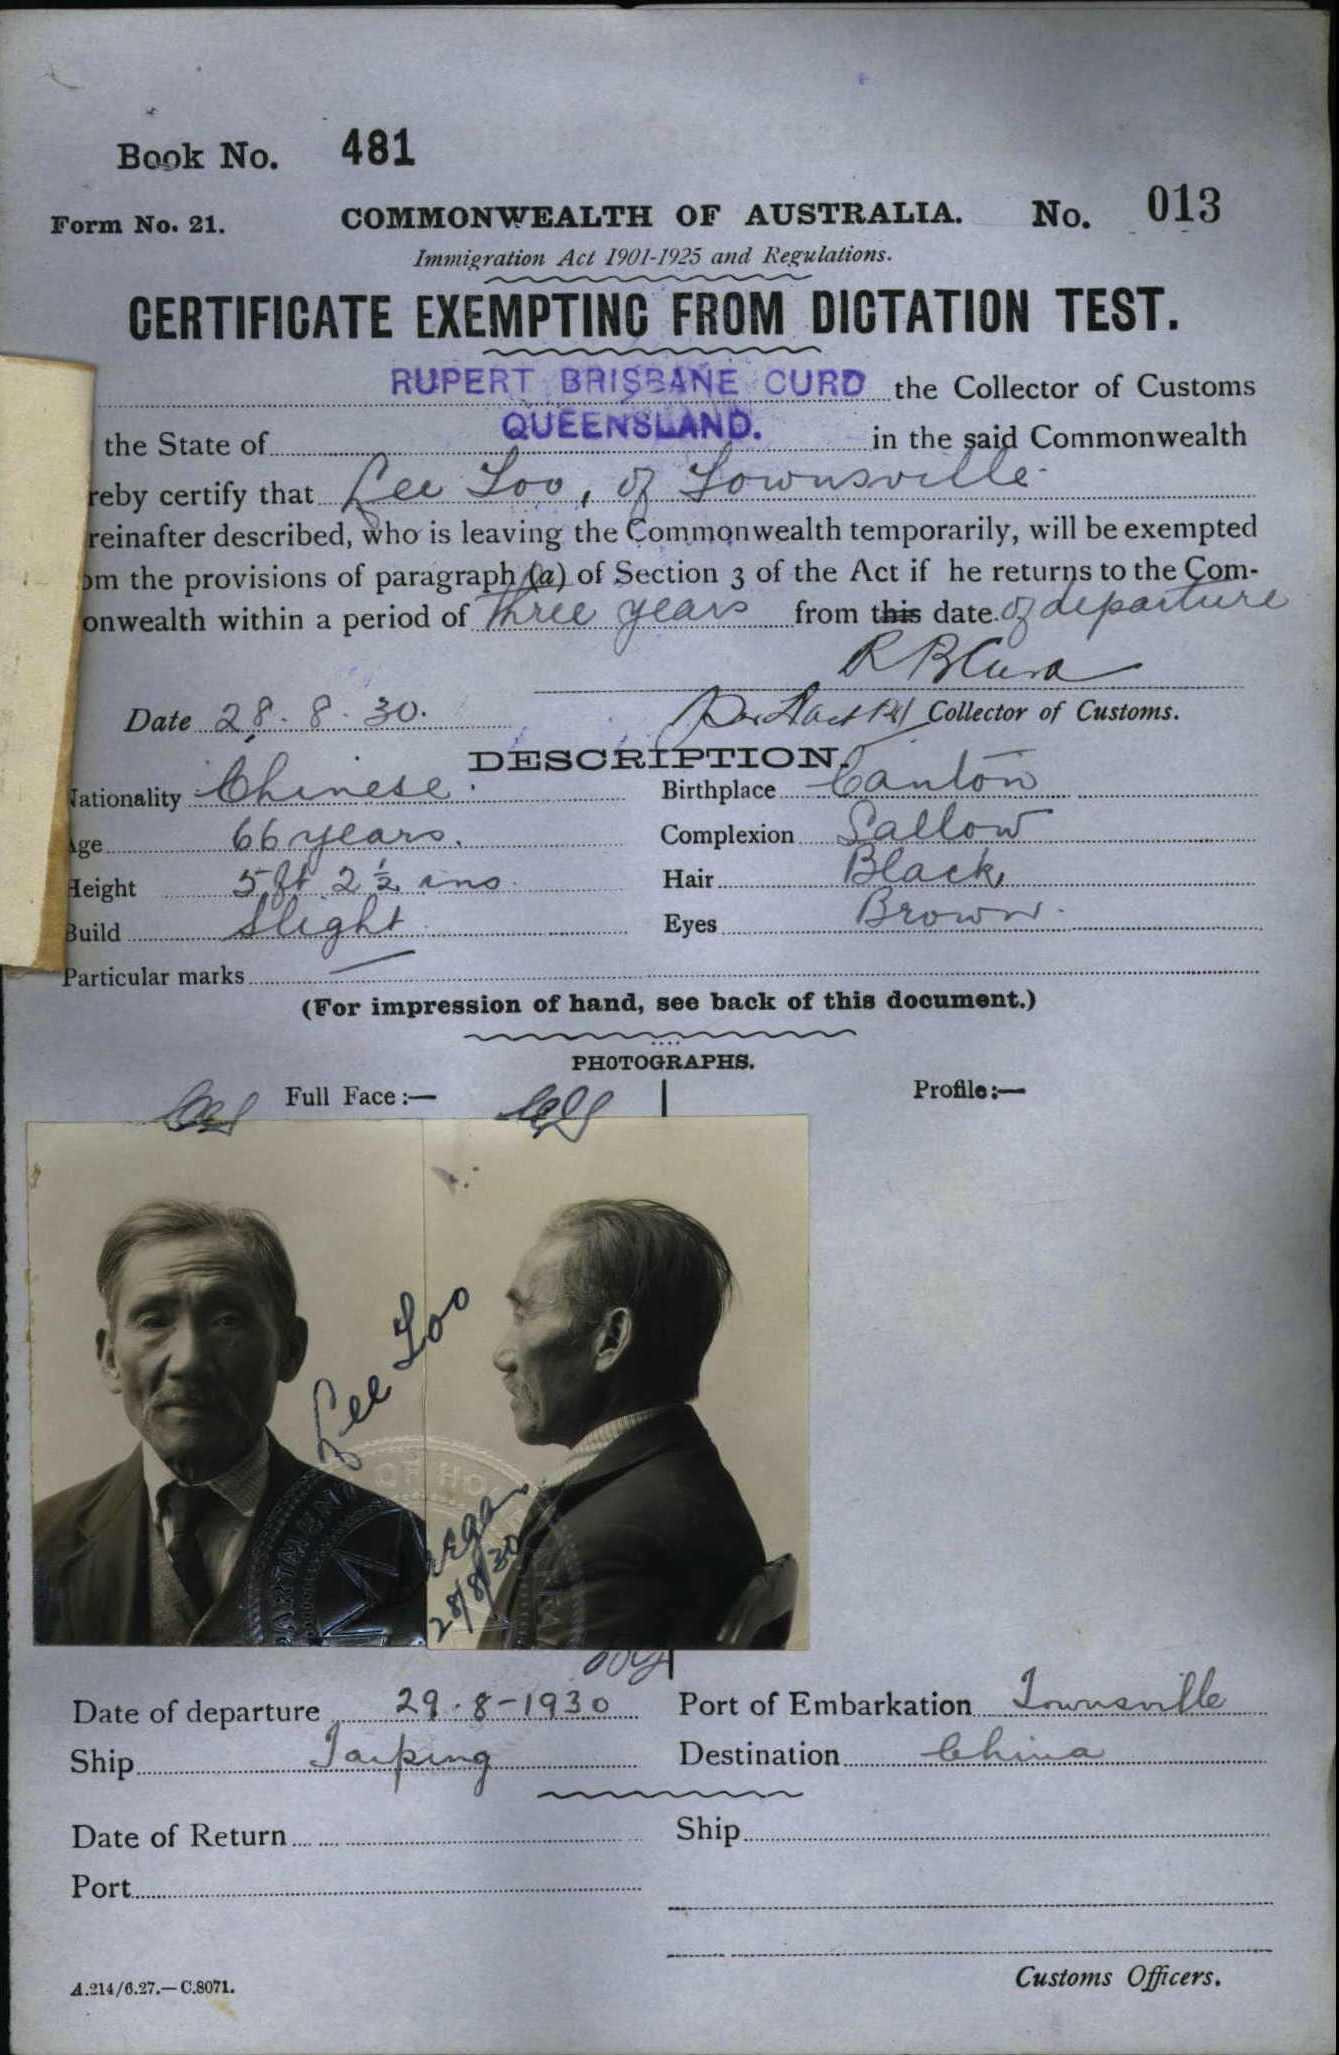 Book No. 481
Form No. 21. COMMONWEALTH OF AUSTRALIA. No. 013
Immigration Act 1901-1925 and Regulations.
CERTIFICATE EXEMPTING FROM DICTATION TEST.
RUPERT BRISBANE CURD the Collector of Customs
the State of QUEENSLAND. in the said Commonwealth
reby certify that Lee Loo, of Townsville
reinafter described, who is leaving the Commonwealth temporarily, will be exempted
om the provisions of paragraph (a) of Section 3 of the Act if he returns to the Com-
onwealth within a period of three years from this date of departure
R B Curd
Date 28.8.30. Collector of Customs.
DESCRIPTION.
Nationality Chinese. Birthplace Canton
Age 66 years. Complexion Sallow
Height 5 ft 2 ½ ins Hair Black
Build Slight Eyes Brown
Particular marks —
(For impression of hand, see back of this document.)
PHOTOGRAPHS.
Full Face:— Profile:—
Lee Loo
28/8/30
Date of departure 29-8-1930 Port of Embarkation Townsville
Ship Taiping Destination China
Date of Return Ship
Port
Customs Officers.
A.214/6.27.—C.8071.